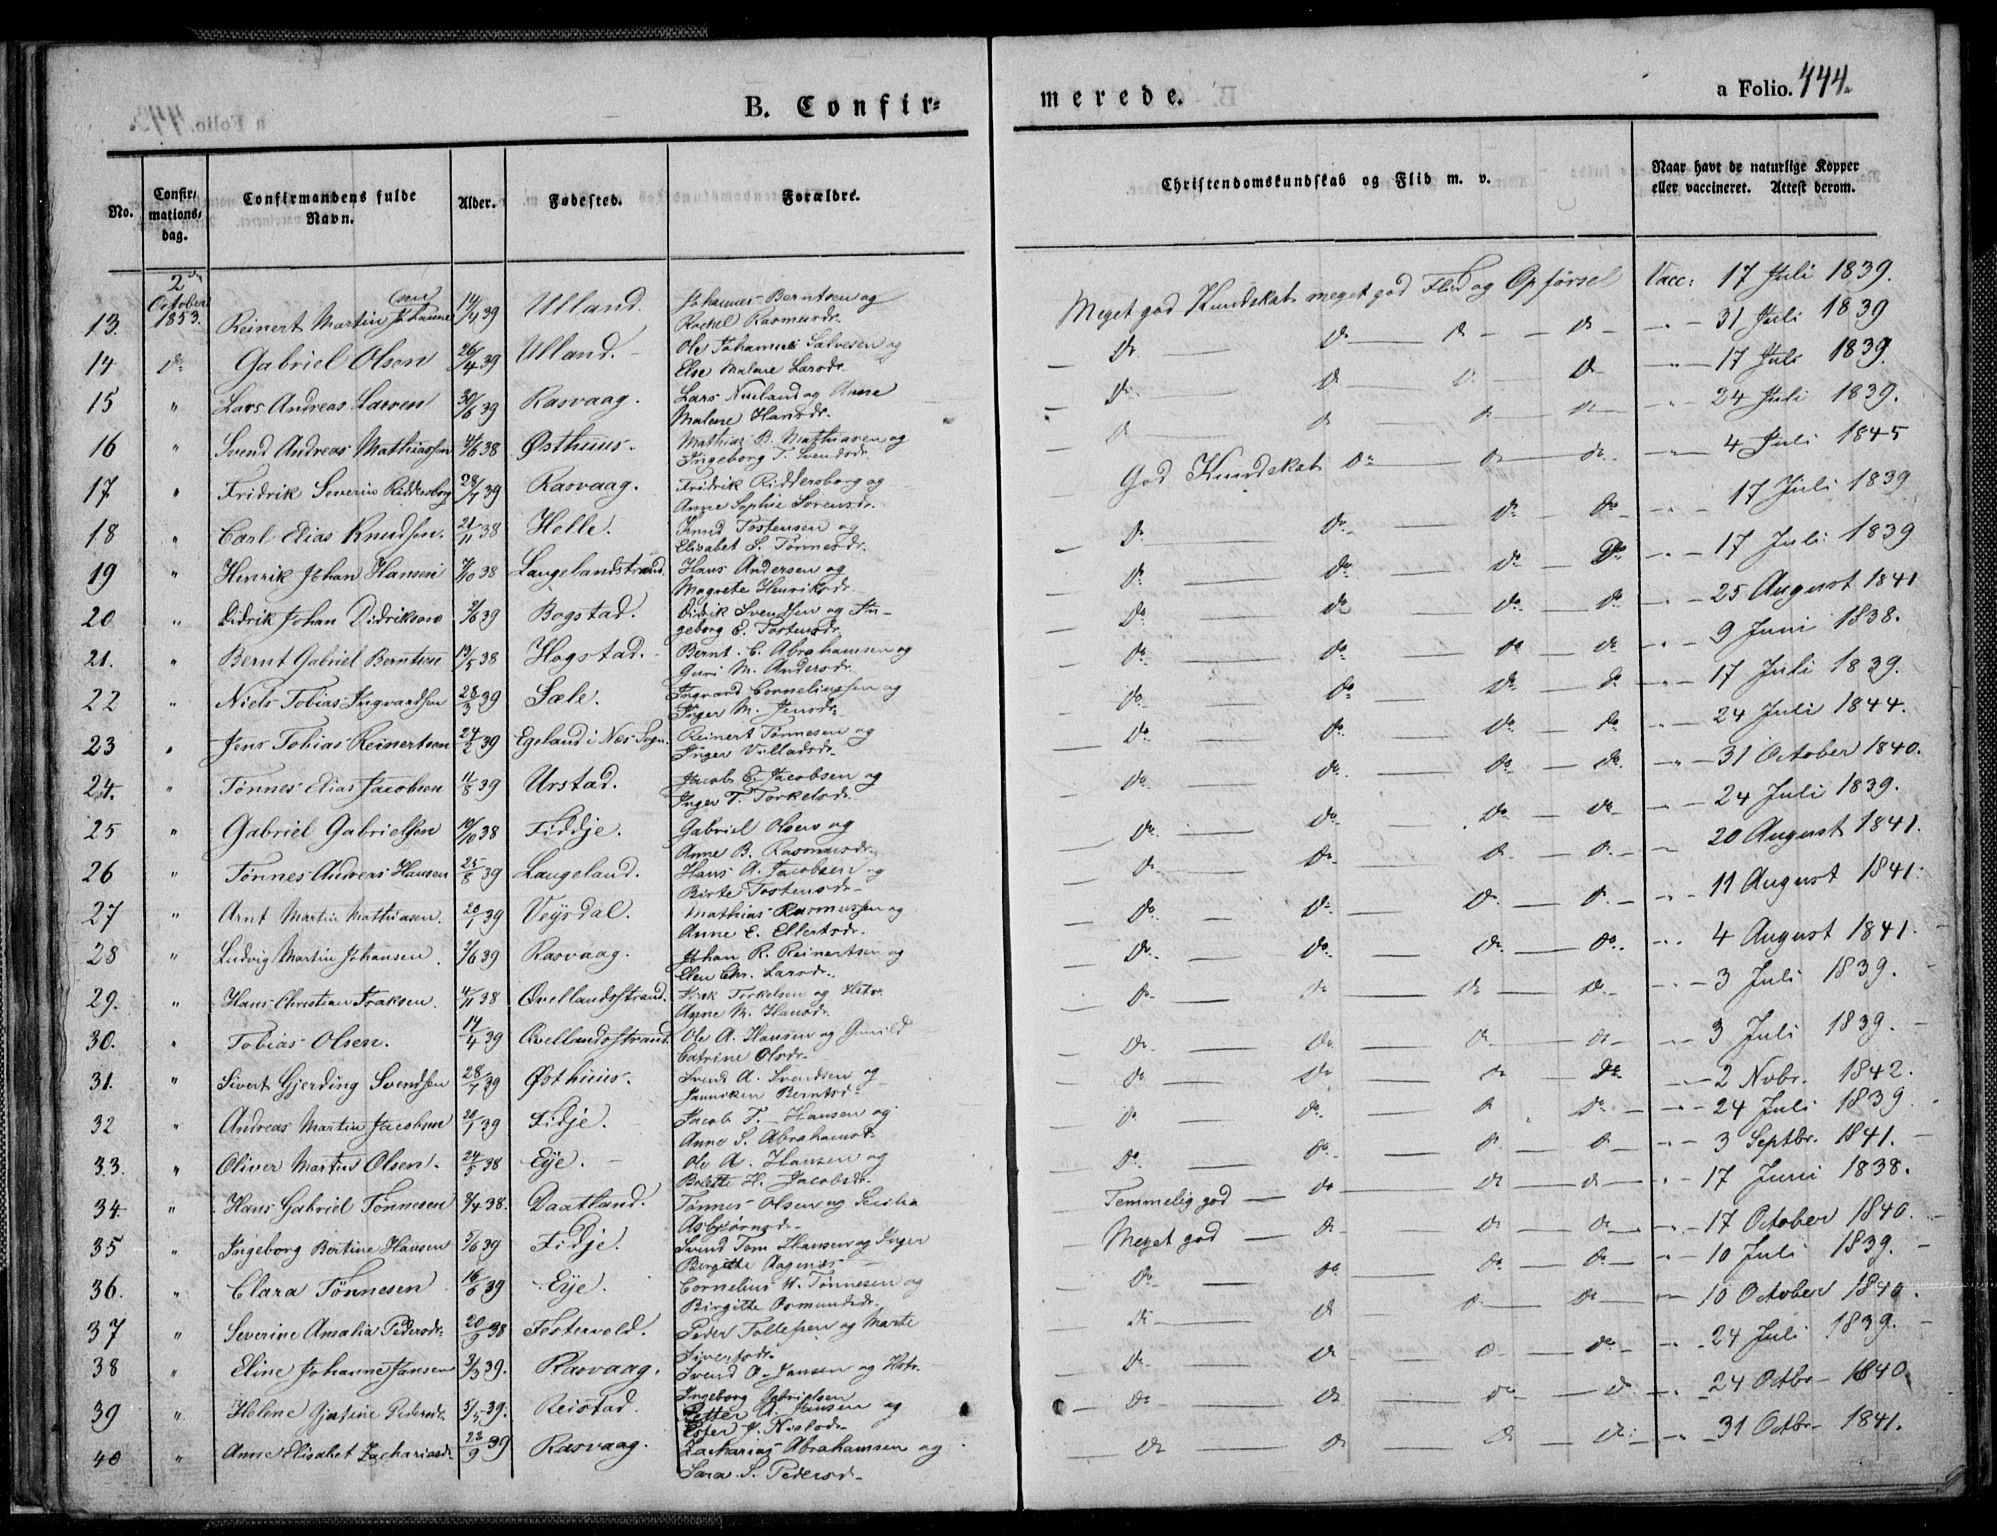 B. Confir=
merede.
a Folio. 444.
No.
Confir-
mations-
dag.
Confirmandens fulde
Navn.
Alder.
Fødested.
Forældre.
Christendomskundskab og Flid m. v.
Naar havt de naturlige Kopper
eller vaccineret. Attest derom.
2den October 1853.
13. Reinert Martin Johannesen 39 Ulland. Johannes Berntsen og Rachel Rasmusdr. Meget god Kundskab meget god Flid og Opførsel Vacc: 17 Juli 1839.
14 Do Gabriel Olsen 26/4 39 Ulland. Ole Johannes Salvesen og Else Malene Larsdr. Do Do Do Do 31 Juli 1839
15 " Lars Andreas Larsen 30/6 39 Rasvaag. Lars Nueland og Anne Malene Hansdr. Do Do Do Do 17 Juli 1839.
16 " Svend Andreas Mathiassen 38 Østhuus. Mathias B. Mathiasen og Ingeborg T. Svendsdr. Do Do Do Do 24 Juli 1839.
17 " Fridrik Severin Riddersborg 28/7 39 Rasvaag. Fridrik Riddersborg og Anne Sophie Sørensdr. God Kundskab Do Do Do 4 Juli 1845
18 " Carl Elias Knudsen. 21/11 38 Helle. Knud Tostensen og Elisabet S. Tønnesdr. Do Do Do Do 17 Juli 1839
19 " Henrik Johan Hansen 38 Langelandstrand. Hans Andersen og Magrete Henriksdr. Do Do Do Do 17 Juli 1839
20 " Didrik Johan Didriksen 39 Bogstad. Didrik Svendsen og In-geborg E. Tostensdr. Do Do Do Do 25 August 1841
21. " Bernt Gabriel Berntsen 19/5 38 Hogstad. Bernt C. Abrahamsen og Guri M. Andersdr. Do Do Do Do 9 Juni 1838.
22 " Niels Tobias Ingvardsen 28/3 39 Sæle. Ingvard Corneliussen og Inger M. Jensdr. Do Do Do Do 17 Juli 1839.
23 " Jens Tobias Reinertsen 24/2 39 Egeland i Næs Sogn. Reinert Tønnesen og Inger Villadsdr. Do Do Do Do 24 Juli 1844.
24. " Tønnes Elias Jacobsen 11/8 39 Urstad. Jacob E. Jacobsen og Inger T. Torkelsdr. Do Do Do Do 31 October 1840.
25 " Gabriel Gabrielsen 38 Fiddje. Gabriel Olsen og Anne B. Rasmusdr. Do Do Do Do 24 Juli 1839.
26 " Tønnes Andreas Hansen 25/8 39 Langeland. Hans A. Jacobsen og Birte Tostensdr. Do Do Do Do 20 August 1841.
27 " Arnt Martin Mathiasen. 20/1 39 Veysdal. Mathias Rasmussen og Anne E. Ellertsdr. Do Do Do Do 11 August 1841.
28 " Ludvig Martin Johansen. 39 Rasvaag. Johan R. Reinertsen og Elen Chr. Larsdr. Do Do Do Do 4 August 1841.
29. " Hans Christian Isaksen. 4/11 38 Qvellandsstrand. Isak Torkelsen og Hstr. Anne M. Hansdr. Do Do Do Do 3 Juli 1839.
30. " Tobias Olsen. 14/4 39 Qvellandsstrand. Ole A. Hansen og Gunild Catrine Olsdr. Do Do Do Do 3 Juli 1839.
31. " Sivert Gjerding Svendsen 28/7 39 Østhuus. Svend A. Svendsen og Janniken Berntsdr. Do Do Do Do 2 Nvbr. 1842.
32 " Andreas Martin Jacobsen 20/1 39 Fidje. Jacob T. Hansen og Anne S. Abrahamsd. Do Do Do Do 24 Juli 1839
33. " Oliver Martin Olsen. 24/5 38 Eije. Ole A. Hansen og Bolette H. Jacobsdr. Do Do Do Do 3 Septbr. 1841.
34. " Hans Gabriel Tønnesen 38. Daatland. Tønnes Olsen og Secilia Asbjørnsdr. Temmelig god Do Do Do 17 Juni 1838.
35 " Ingeborg Bertine Hansen 39 Fidje. Svend Tom Hansen og Inger Bergitte Aagenæs Meget god Do Do Do 17 October 1840.
36. " Clara Tønnesen 39 Eije. Cornelius M. Tønnesen og Birgitte Osmundsdr. Do Do Do Do 10 Juli 1839.
37 " Severine Amalia Pedersdr. 38 Festervold. Peder Tollefsen og Marte Sivertsdr. Do Do Do Do 10 October 1840.
38 " Eline Johanne Jansen 39. Rasvaag. Svend O. Jansen og Hstr. Ingeborg Gabrielsen Do Do Do Do 24 Juli 1839.
39 " Helene Gjertine Pedersdr. 39. Reistad. Petter A. Jansen og Ester J. Nielsdr. Do Do Do Do 24 Octbr 1840.
40 " Anne Elisabet Zachariasdr. 22/9 39 Rasvaag. Zacharias Abrahamsen og Sara S. Pedersdr. Do Do Do Do 31 Octbr 1841.